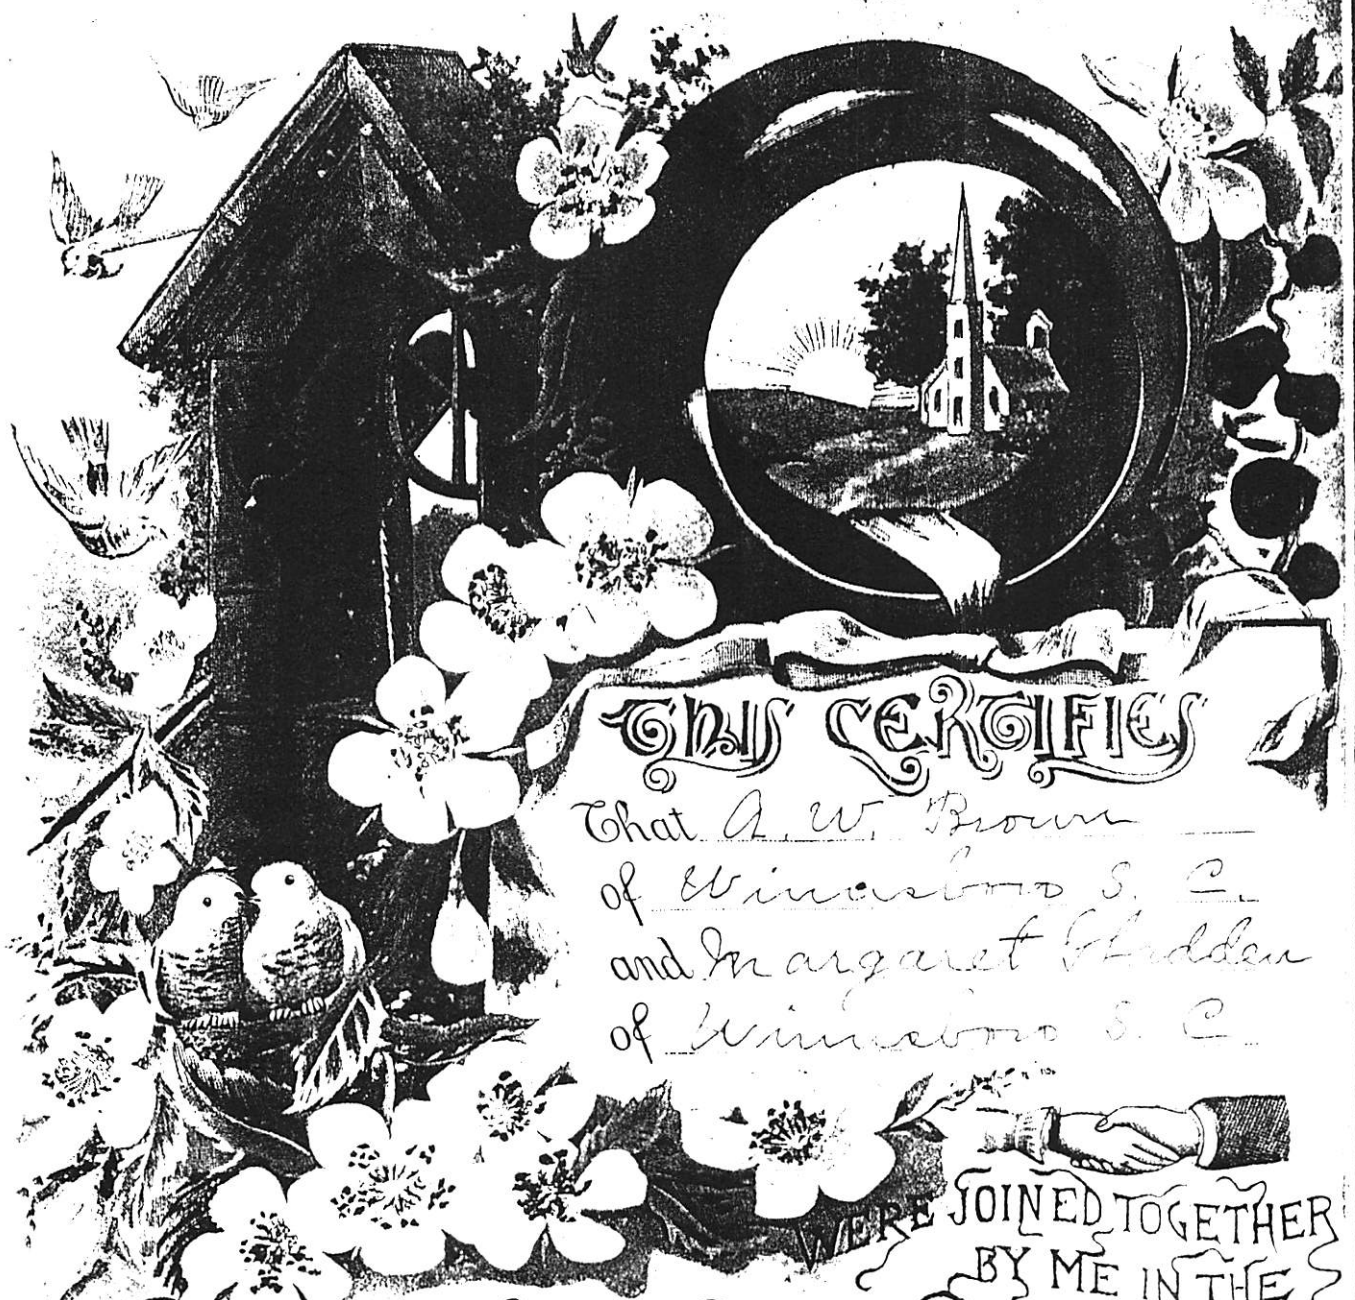 THIS CERTIFIES
That A. W. Brown
of Winnsboro S. C.
and Margaret Gladden
of Winnsboro S. C
WERE JOINED TOGETHER
BY ME IN THE